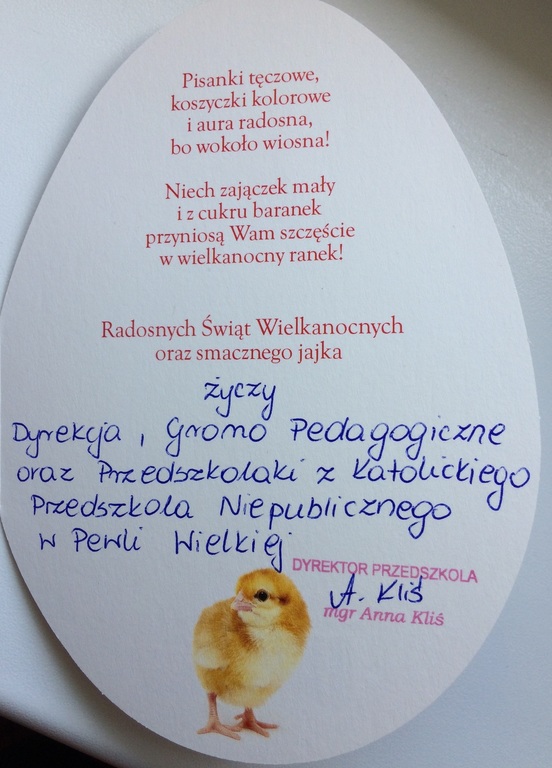 Pisanki tęczowe,
koszyczki kolorowe
i aura radosna,
bo wokoło wiosna!
Niech zajączek mały
i z cukru baranek
przyniosą Wam szczęście
w wielkanocny ranek!
Radosnych Świąt Wielkanocnych
oraz smacznego jajka
życzy
Dyrekcja, Grono Pedagogiczne
oraz Przedszkolaki z Katolickiego
Przedszkola Niepublicznego
w Pewli Wielkiej
DYREKTOR PRZEDSZKOLA
A. Kliś
mgr Anna Kliś